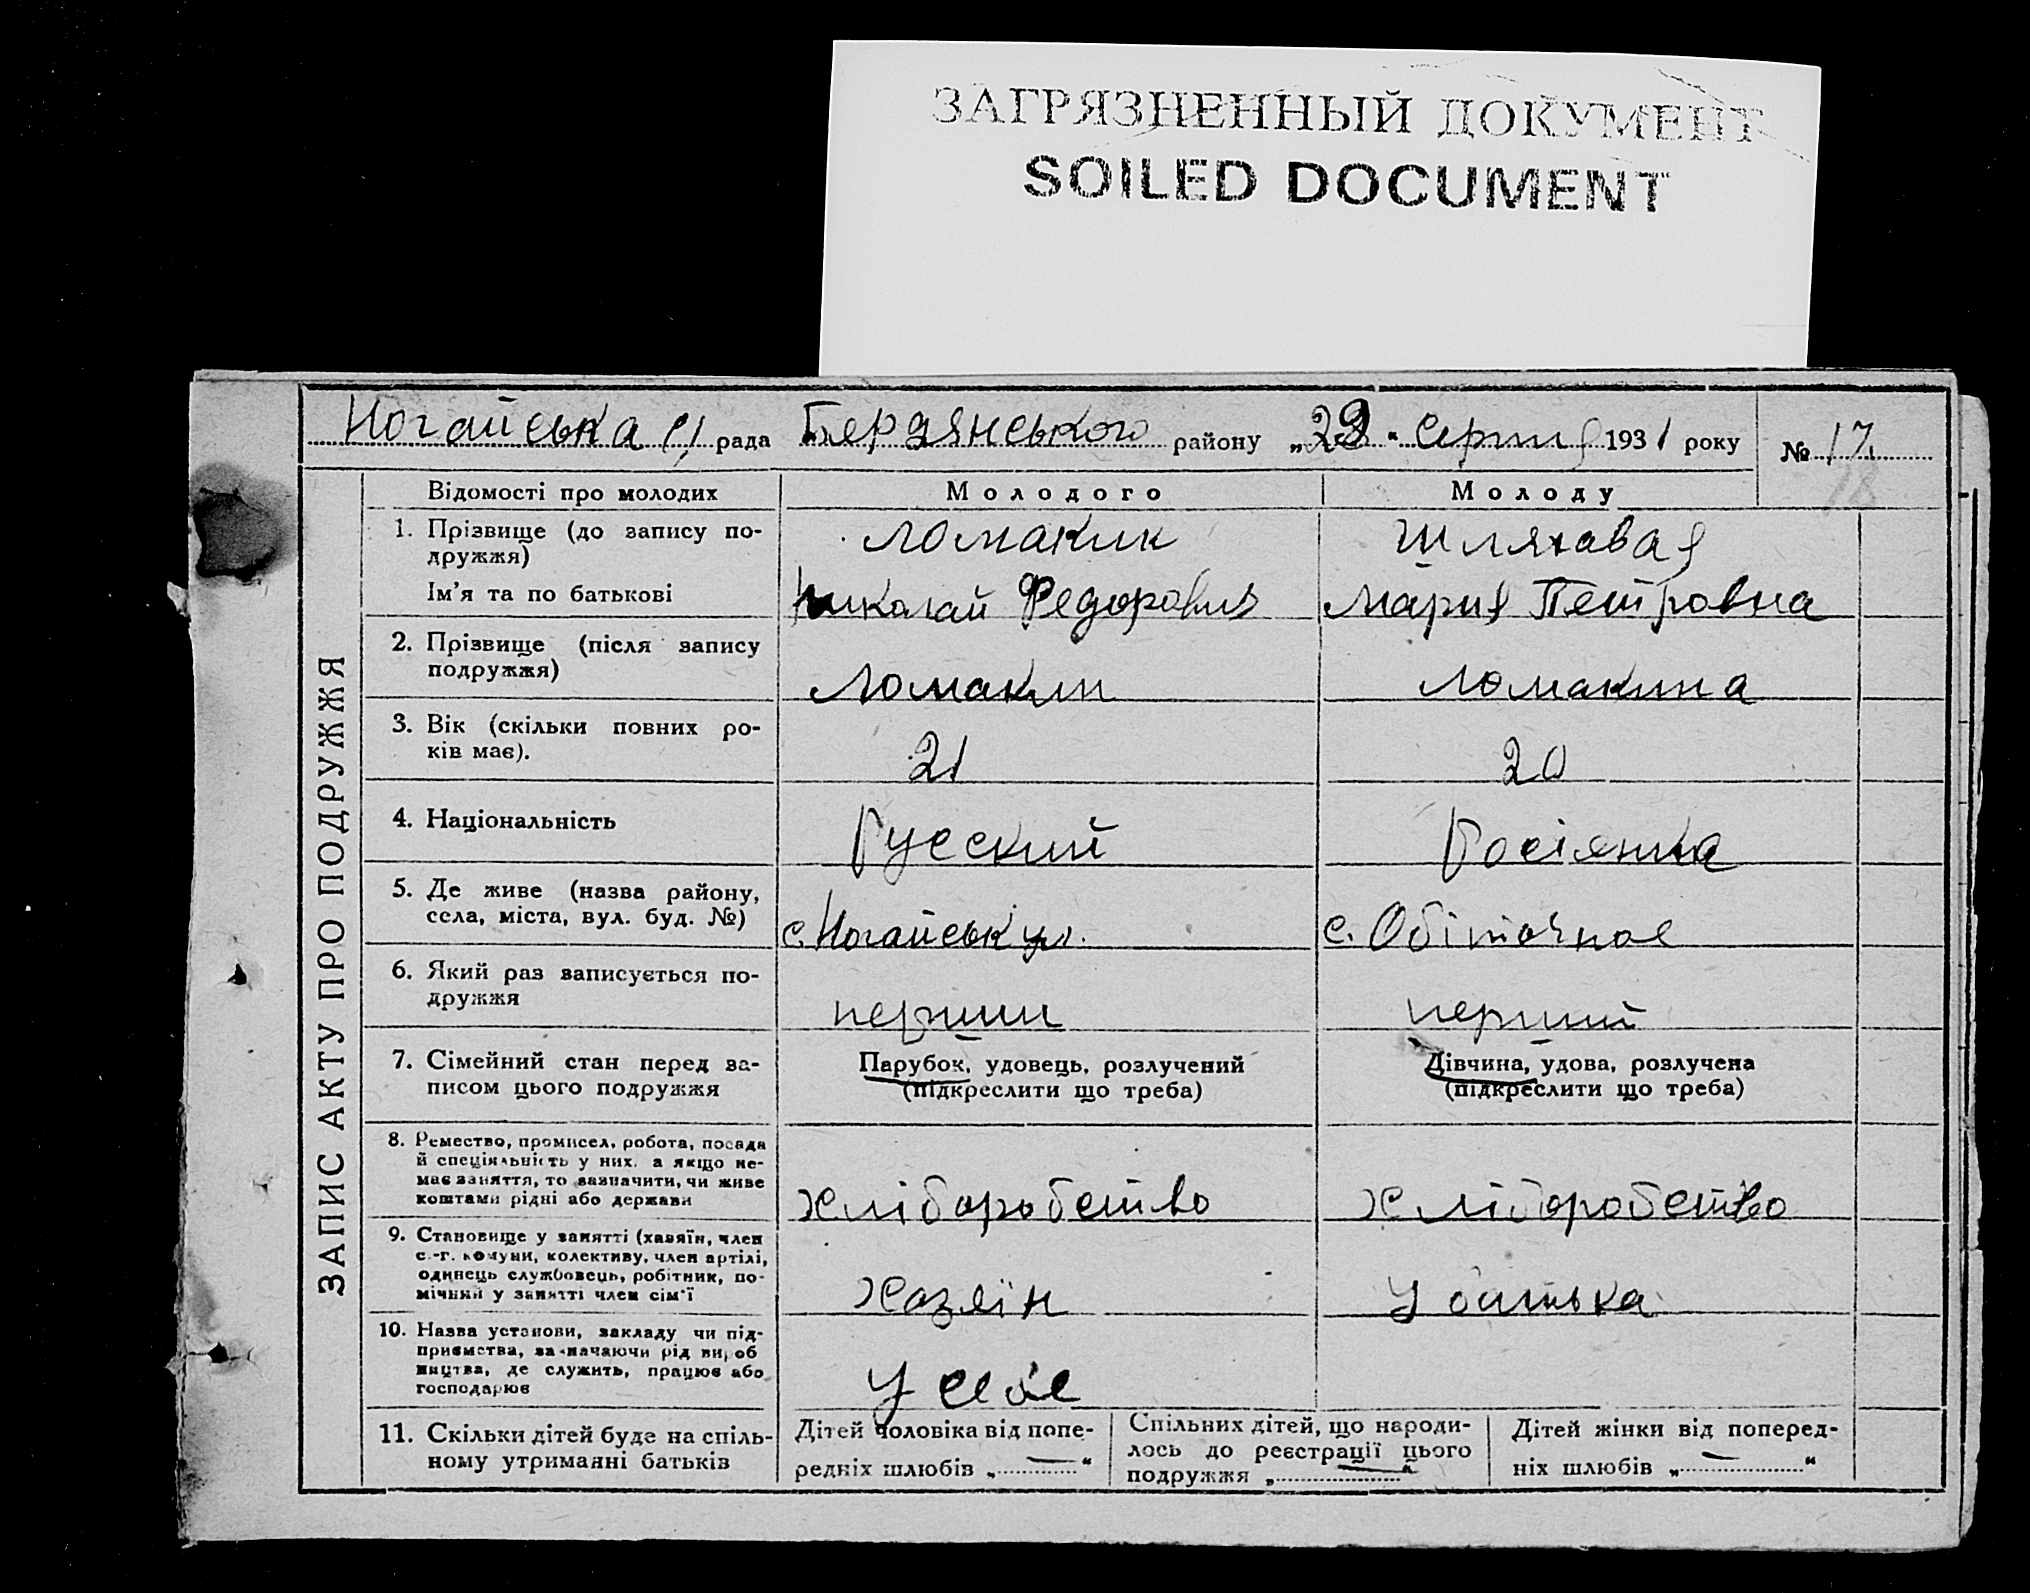 ЗАГРЯЗНЕННЫЙ ДОКУМЕНТ
SOILED DOCUMENT
Ногайська с/ рада Бердянського району „29" серпня 1931 року № 17
18
ЗАПИС АКТУ ПРО ПОДРУЖЖЯ
Відомості про молодих
Молодого
Молоду
1. Прізвище (до запису по-
дружжя)
Ломакин
Шляхавая
Ім'я та по батькові
Николай Федорович
Мария Петровна
2. Прізвище (після запису
подружжя)
Ломакин
Ломакина
3. Вік (скільки повних ро-
ків має).
21
20
4. Національність
Русский
Росіянка
5. Де живе (назва району,
села, міста, вул. буд. №)
с. Ногайськ
с. Обіточное
6. Який раз записується по-
дружжя
перший
перший
7. Сімейний стан перед за-
писом цього подружжя
Парубок, удовець, розлучений
(підкреслити що треба)
Дівчина, удова, розлучена
(підкреслити що треба)
8. Ремество, промисел, робота, посада
й спеціяльність у них, а якщо не-
має заняття, то зазначити, чи живе
коштами рідні або держави
хліборобство
хліборобство
9. Становище у занятті (хазяїн, член
с.-г. комуни, колективу, член артілі,
одинець службовець, робітник, по-
мічний у занятті член сім'ї
хазяїн
у батька
10. Назва установи, закладу чи під-
приємства, зазначаючи рід вироб
ництва, де служить, працює або
господарює
у себе
11. Скільки дітей буде на спіль-
ному утриманні батьків
Дітей чоловіка від попе-
редніх шлюбів „ — "
Спільних дітей, що народи-
лось до реєстрації цього
подружжя „ — "
Дітей жінки від поперед-
ніх шлюбів „ — "